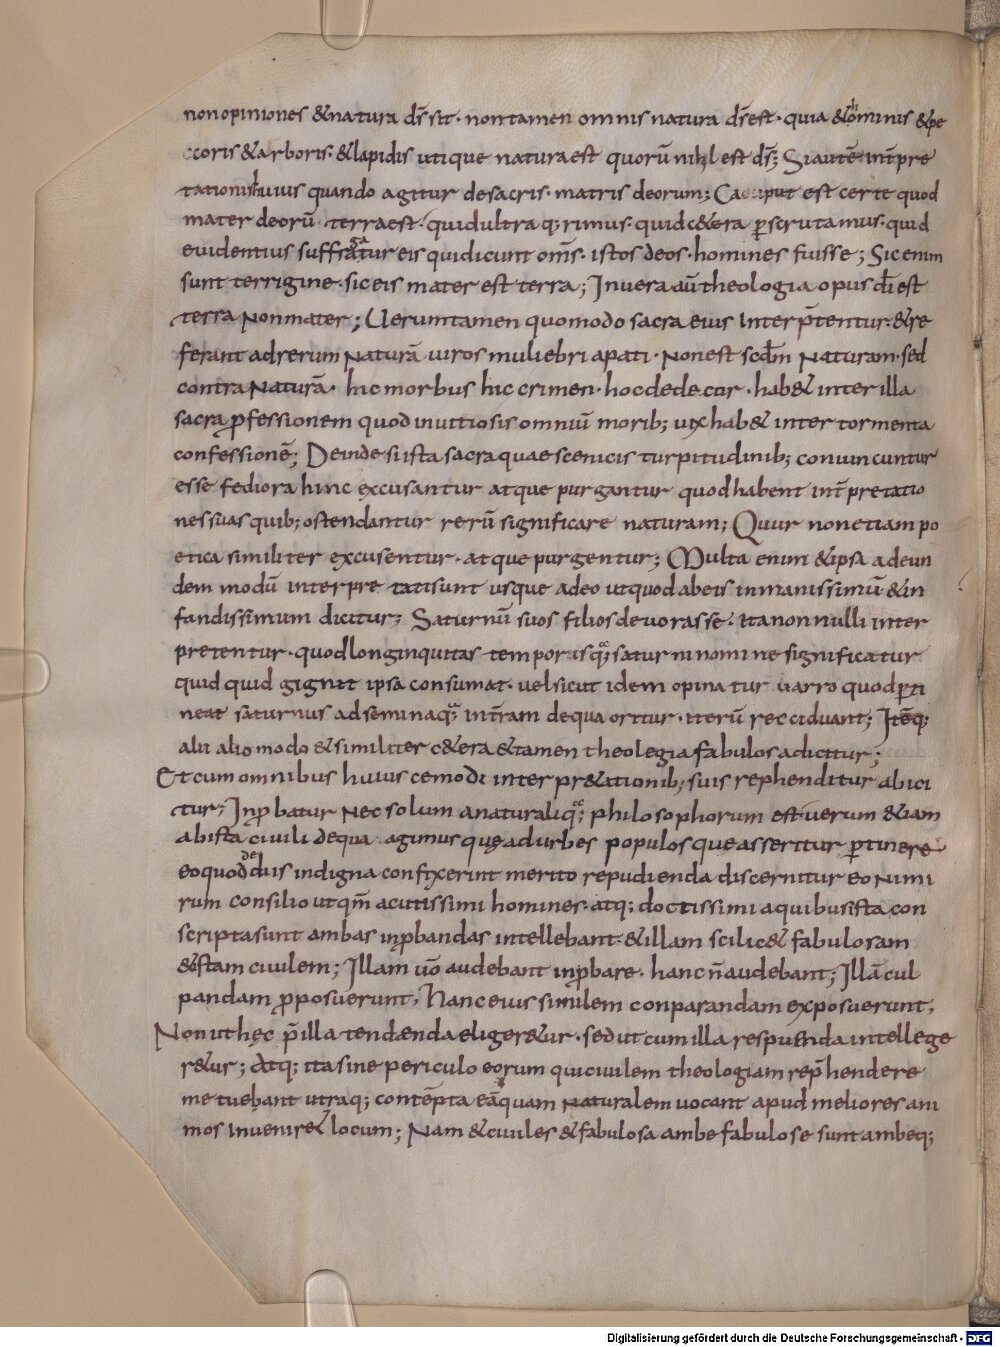 nonopiniones &natura d̄s sit · nontamen omnis natura d̄s est · quia &hominis &pe
ccoris &arboris · &lapidis utique natura est quorū nihil est d̄s; Siautē int̄pre
tationis huius quando agitur desacris · matris deorum; Caput est certe quod
mater deorū · terraest · quidultra q;rimus · quidc&era p̄scrutamus · quid
euidentius suffragatur eis quidicunt om̄s · istos deos · homines fuisse; Sicenim
sunt terrigine · siceis mater est terra; Inuera aūt theologia opus d̄i est
terra Nonmater; Ueruntamen quomodo sacra eius Interp̄tentur &re
ferant adrerum Naturā uiros muliebri apati · Nonest scd̄m Naturam · sed
contra Naturā · hic morbus hic crimen · hocdedecur · hab& inter illa
sacra p̄fessionem quod inuitiosis omniū morib; uix hab& inter tormenta
confessionē; Deinde siista sacra quae scenicis turpitudinib; conuincuntur
esse fediora hinc excusantur atque purgantur quod habent int̄pretatio
nes suas quib; ostendantur rerū significare naturam; Quur nonetiam po
etica similiter excusentur · atque purgentur; Multa enim &ipsa adeun
dem modū interpretatisunt usque adeo utquod abeis inmanissimū &in
fandissimum dicitur; Saturnū suos filios deuorasse · ita nonnulli inter
pretentur · quodlonginquitas temporis q̄; saturninomine significatur
quidquid gignit ipsa consumat · uelsicut idem opinatur uarro quod p̄ti
neat saturnus adseminaq̄; int̄ram dequa oritur · iterū recciduant; Itēq;
alii alio modo &similiter c&era &tamen theolegia fabulosa dicitur;
Et cum omnibus huius cemodi interpr&ationib; suis rephenditur abici
tur; Inp̄batur Nec solum anaturaliq̄; philosophorum est uerum &iam
abista ciuili dequa agimus quę adurbes populosque asseritur p̄tinere
eoquod de diis indigna confixerint merito repudienda discernitur eo Nimi
rum consilio utqm̄ acutissimi homines · atq; doctissimi aquibus ista con
scripta sunt ambas inp̄bandas intellebant · &illam scilic& fabulosam
&istam ciuilem; Illam uō audebant inp̄bare · hanc n̄audebant; Illā cul
pandam p̄posuerunt, hanc eius similem conparandam exposuerunt,
Nonut hęc p̄illa tendænda eliger&ur · sedut cum illa respuenda intellege
r&ur; Atq; ita sine periculo eorum quiciuilem theologiam rep̄hendere
metuebant utraq; contēpta eāquam Naturalem uocant apud meliores ani
mos inuenir& locum; Nam &ciuiles &fabulosa ambe fabulose sunt ambeq;
Digitalisierung gefördert durch die Deutsche Forschungsgemeinschaft - DFG